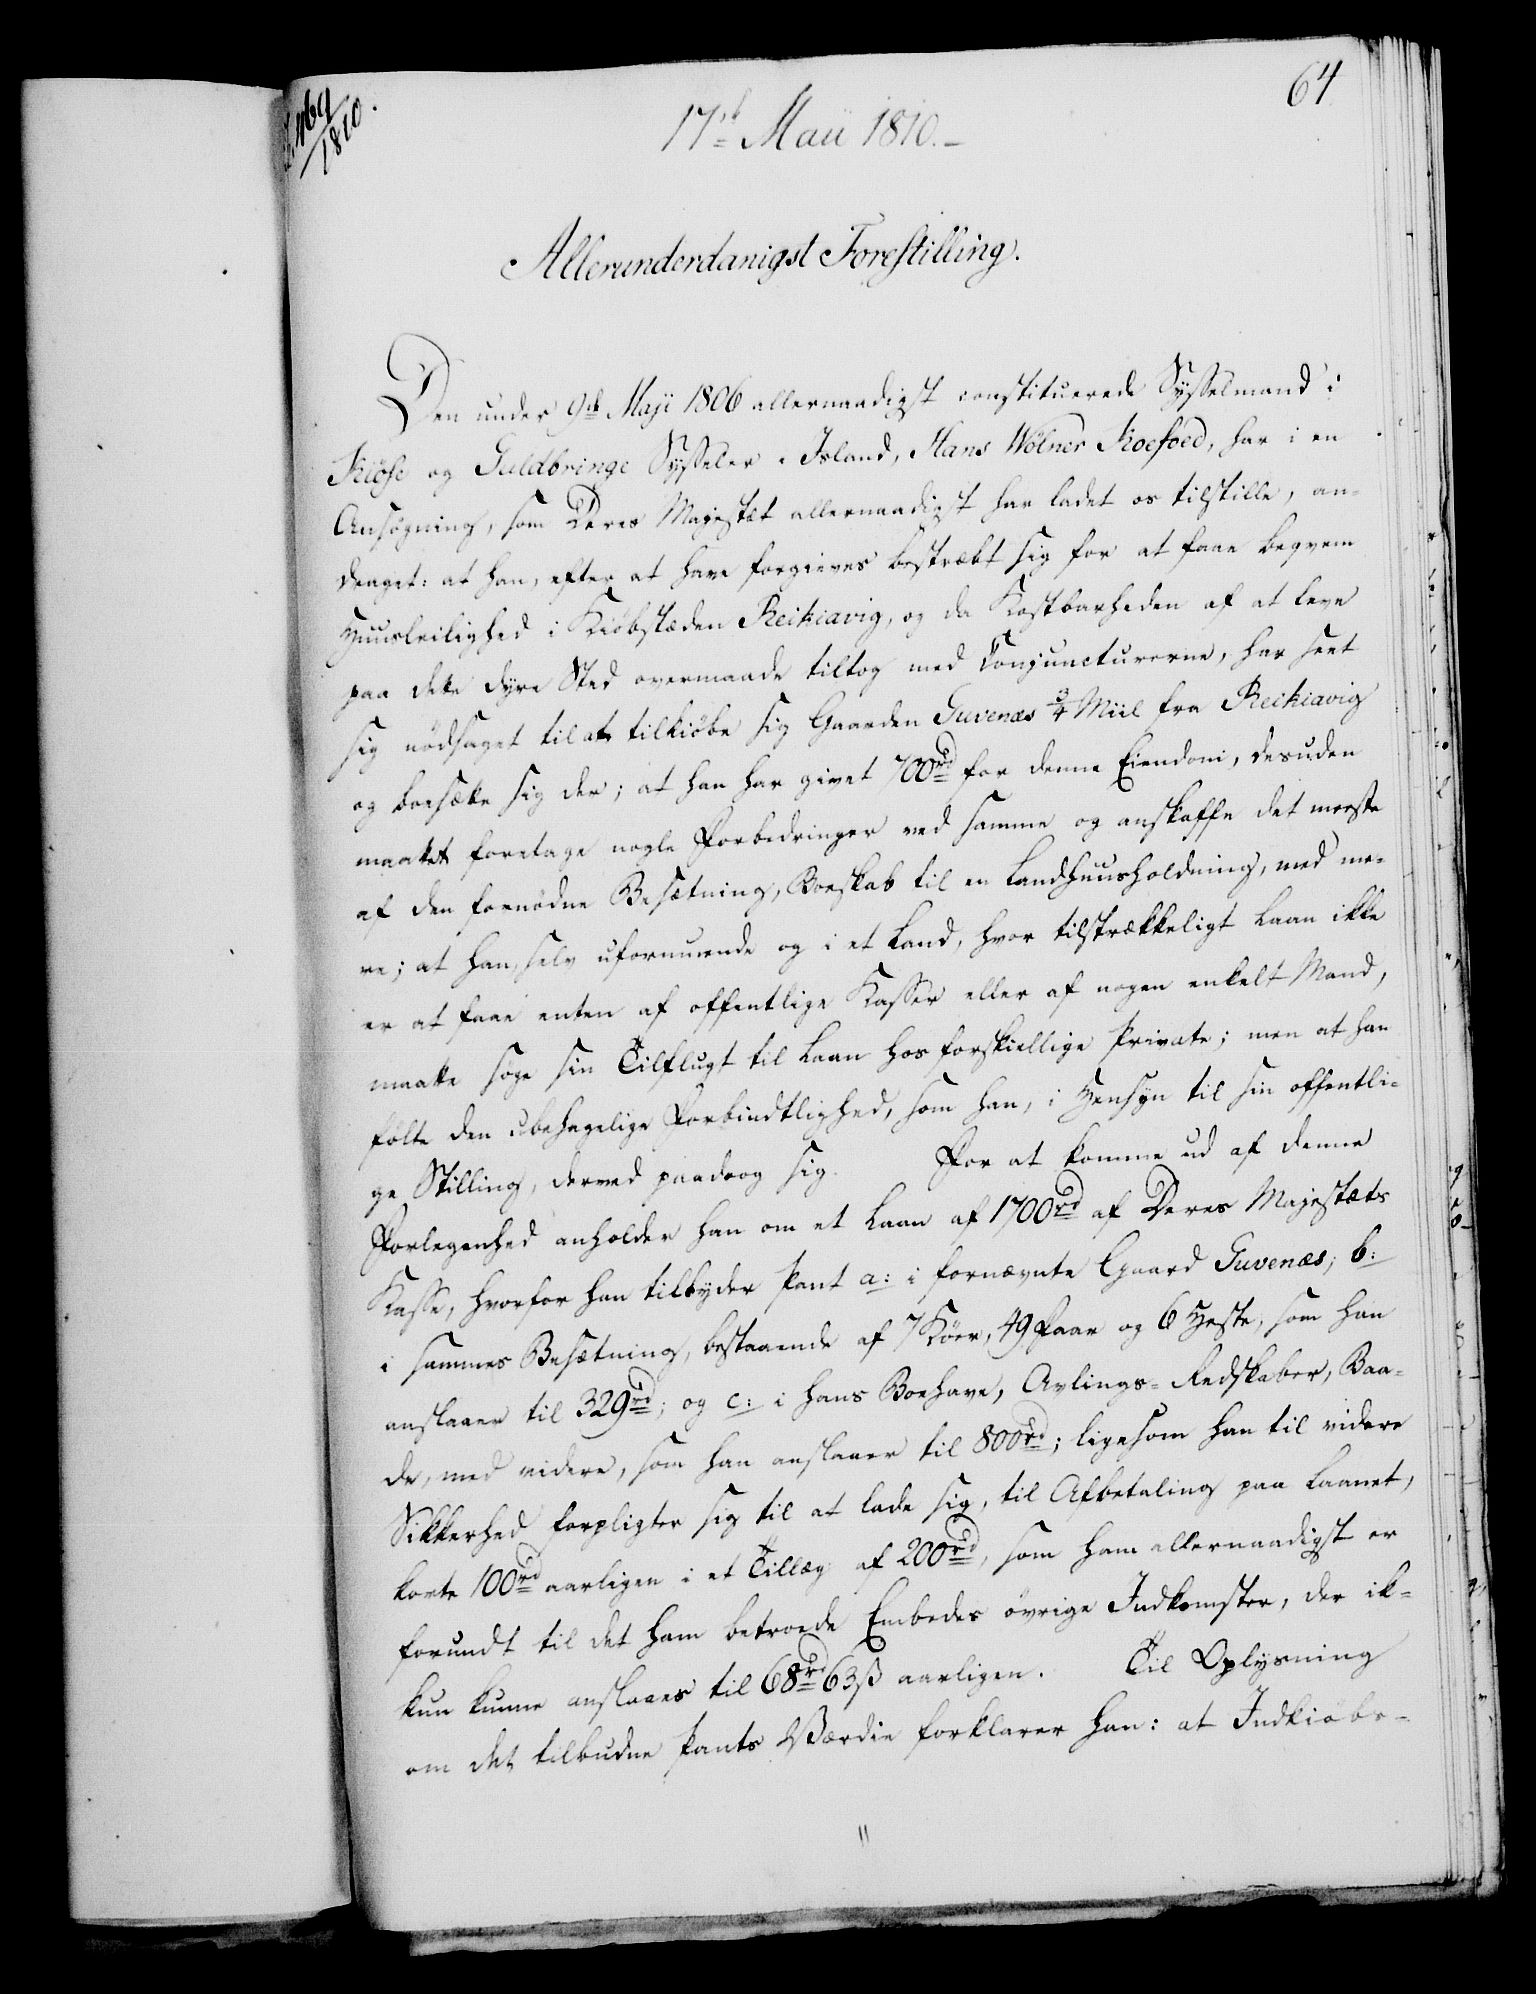 64
469
1810.
17de Maii 1810.-
Allerunderdanigst Forestilling.
Den under 9de Maji 1806 allernaadigst constituerede Sysselmand i
Kiöse og Guldbringe Sysseler i Island, Hans Wölner Koefoed, har i en
Ansögning, som Deres Majestæt allernaadigst har ladet os tilstille, an-
draget: at han, efter at have forgieves bestræbt sig for at faae beqvem
Huusleilighed i Kiöbstæden Reikiavig, og da Kostbarheden af at leve
paa dette dyre Sted overmaade tiltog med Conjuncturerne, har seet
sig nödsaget til at tilkiöbe sig Gaarden Guvenæs 3/4 Miil fra Reikiavig
og bosætte sig der; at han har givet 700rd for denne Eiendom, desuden
maattet foretage nogle Forbedringer ved samme og anskaffe det meeste
af den fornödne Besætning, Boeskab til en Landhuusholdning, med me-
re; at han, selv uformuende og i et Land, hvor tilstrækkeligt Laan ikke
er at faae enten af offentlige Kasser eller af nogen enkelt Mand,
maatte söge sin Tilflugt til Laan hos forskiellige Private; men at han
fölte den ubehagelige Forbindtlighed, som han, i Hensyn til sin offentli-
ge Stilling, derved paadrog sig. For at komme ud af denne
Forlegenhed anholder han om et Laan af 1700rd af Deres Majestæts
Kasse, hvorfor han tilbyder Pant a: i fornævnte Gaard Guvenæs; b:
i sammes Besætning, bestaaende af 7 Köer, 49 Faar og 6 Heste, som han
anslaaer til 329rd; og c: i hans Boehave, Avlings-Redskaber, Baa-
de, med videre, som han anslaaer til 800rd; ligesom han til videre
Sikkerhed forpligter sig til at lade sig, til Afbetaling paa Laanet,
korte 100rd aarligen i et Tillæg af 200rd, som ham allernaadigst er
forundt til det ham betroede Embedes övrige Indkomster, der ik-
kun kunne anslaaes til 68rd 63ß aarligen. Til Oplysning
om det tilbudne Pants Værdie forklarer han: at Indkiöbs-